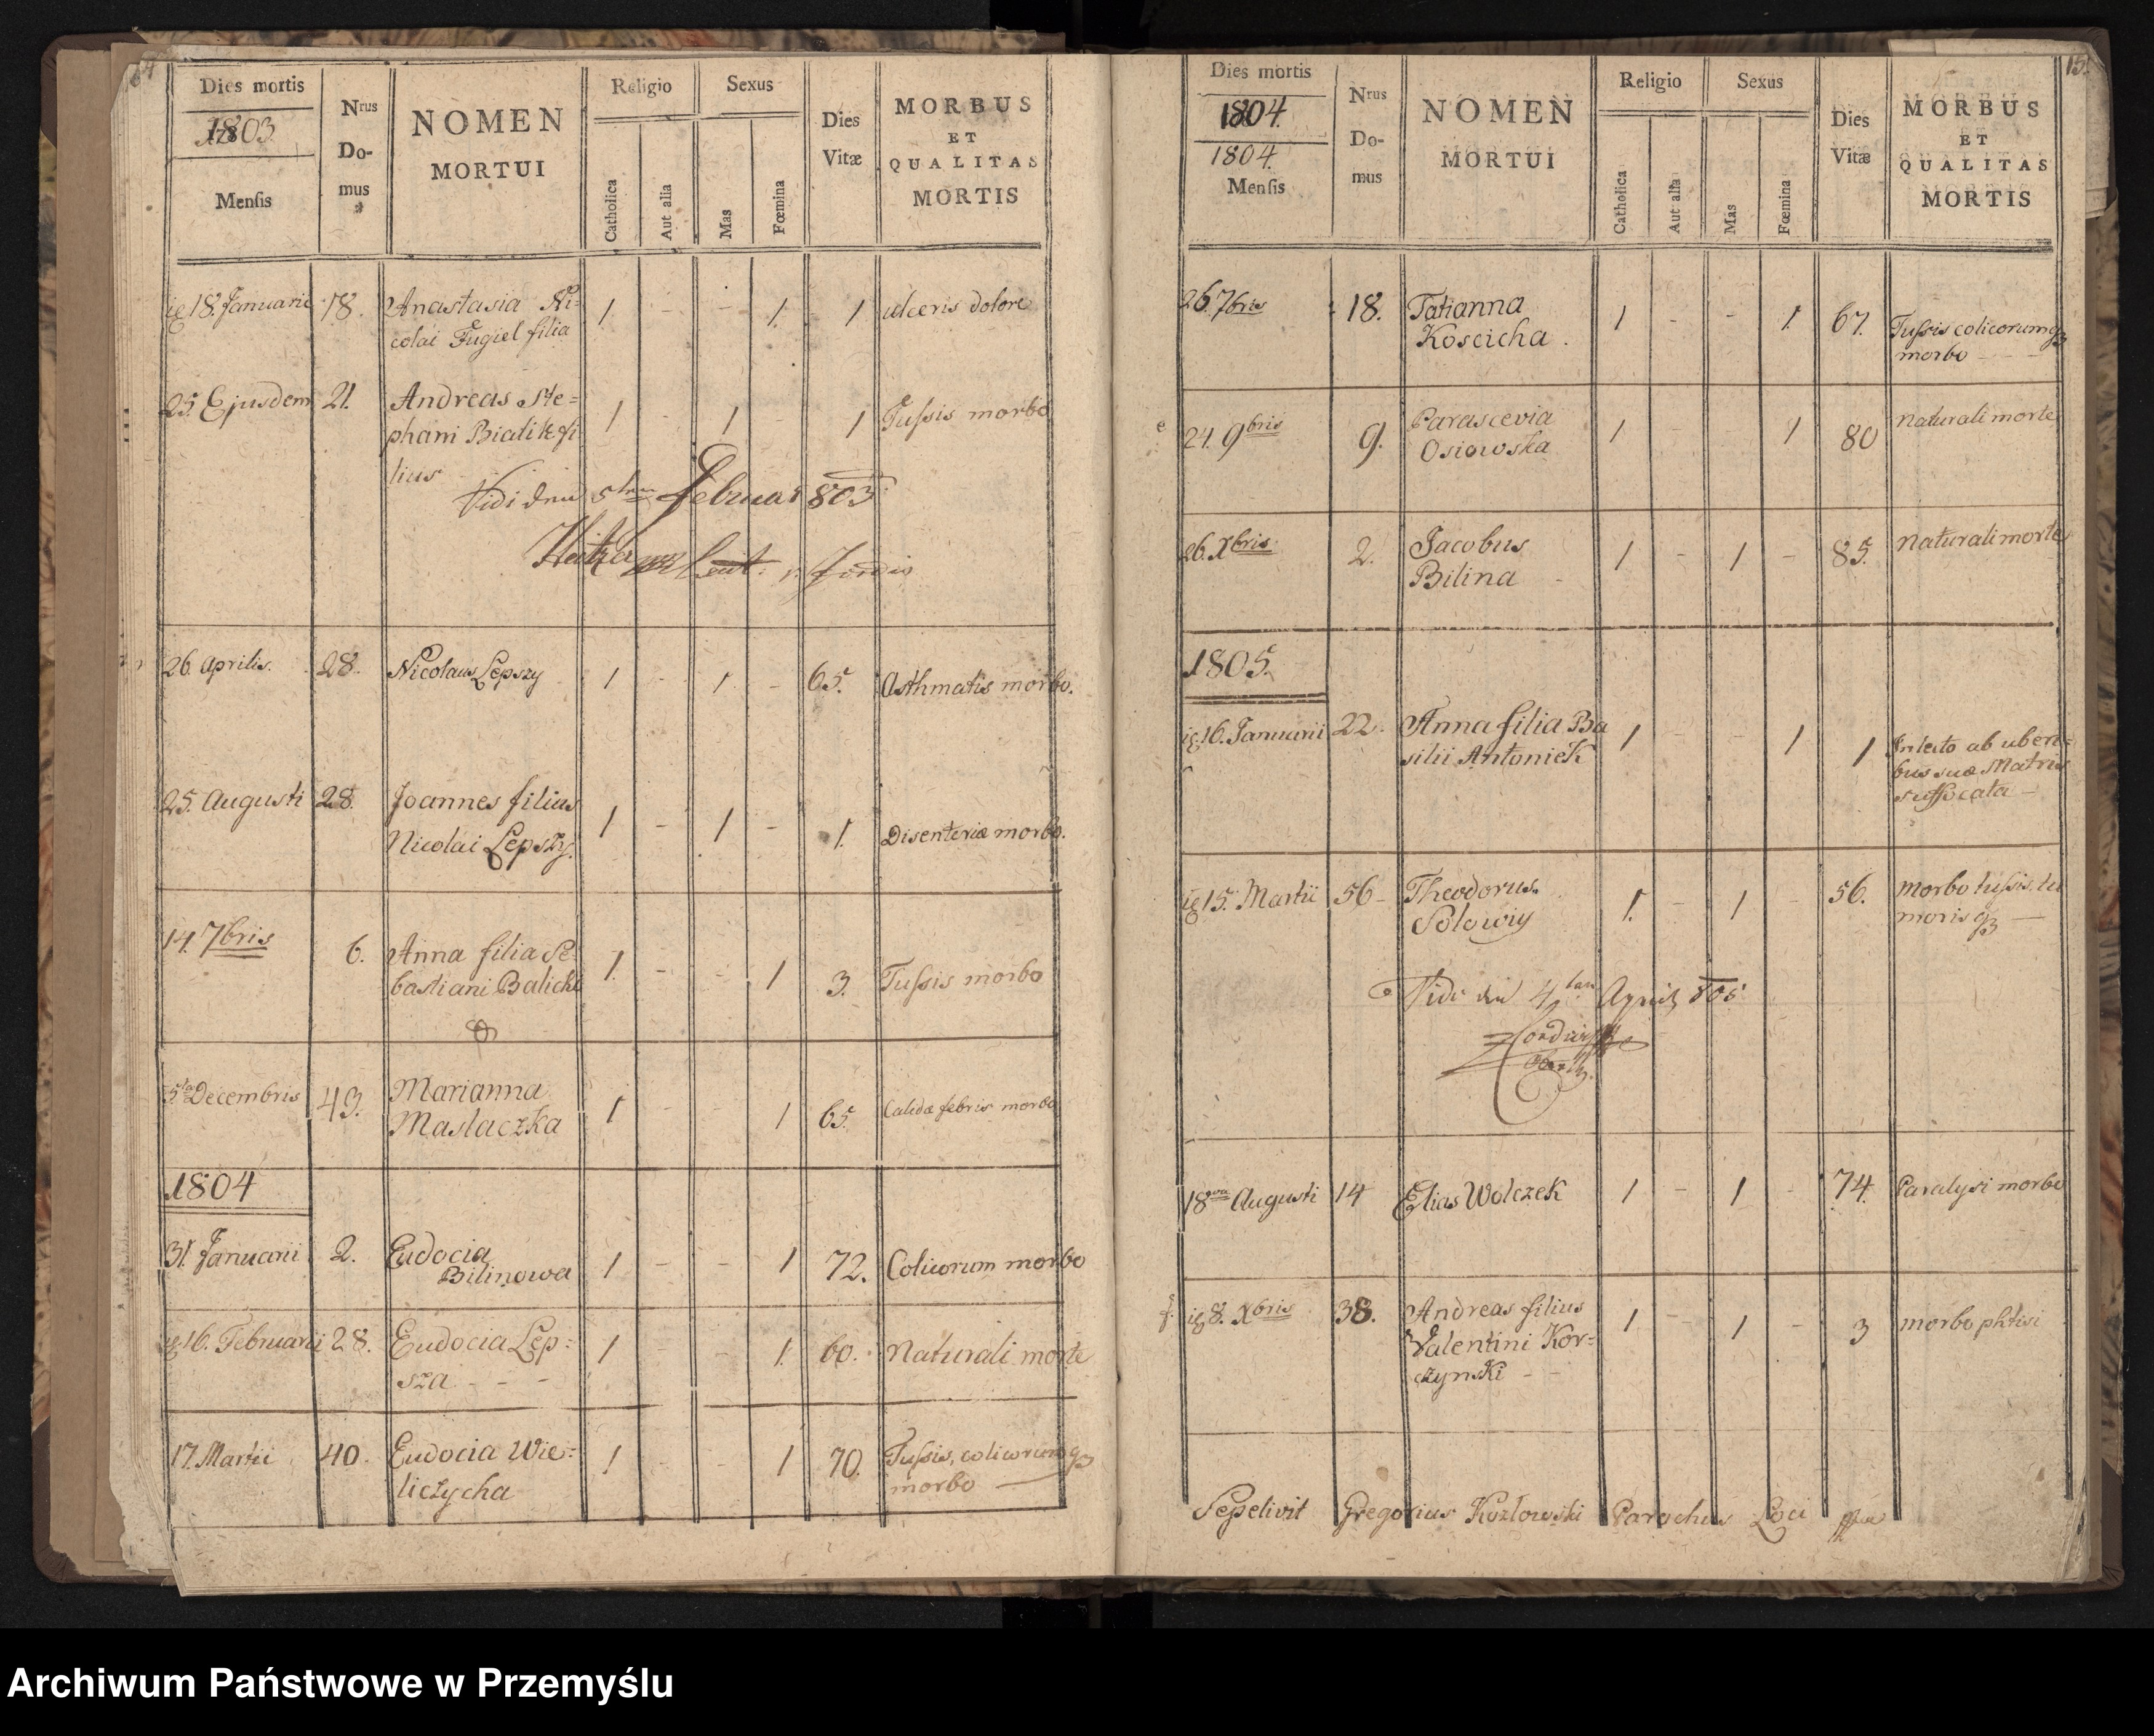 Dies mortis
1803
Mensis
Nrus
Do-
mus
NOMEN
MORTUI
Religio
Catholica
Aut alia
Sexus
Mas
Fœmina
Dies
Vitæ
MORBUS
ET
QUALITAS
MORTIS
18. Januarii 18. Anastasia Ni= 1 - - 1 1 ulceris dolore
colai Fugiel filia
25. Ejusdem 21. Andreas Ste= 1 - 1 - 1 Tussis morbo
phani Bialik fi
lius
Vidi den 5ten Februar 803
26. Aprilis. 28. Nicolaus Lepszy 1 - 1 - 65. Asthmatis morbo.
25. Augusti 28. Joannes filius 1 - 1 - 1. Disenteriæ morbo.
Nicolai Lepszy.
14. 7bris 6. Anna filia Se= 1 - - 1 3. Tussis morbo
bastiani Balicki
5ta Decembris 43. Marianna 1 - - 1 65. Calidæ febris morbo
Maslaczka
1804
31. Januarii 2. Eudocia 1 - - 1 72. Colicorum morbo
Bilinowa
16. Februarii 28. Eudocia Lep= 1 - - 1. 60. Naturali morte
sza - - -
17. Martii 40. Eudocia Wie= 1 - - 1 70. Tussis, colicorumq3
liczycha morbo
15.
Dies mortis
1804.
1804.
Mensis
Nrus
Do-
mus
NOMEN
MORTUI
Religio
Catholica
Aut alia
Sexus
Mas
Fœmina
Dies
Vitæ
MORBUS
ET
QUALITAS
MORTIS
26. 7bris 18. Tatianna 1 - - 1. 67. Tussis colicorumq3
Koscicha. morbo - - -
24. 9bris 9. Parascevia 1 - - 1 80 Naturali morte
Osiowska
26. Xbris 2. Jacobus 1 - 1 - 85. Naturali morte
Bilina -
1805.
16. Januarii 22. Anna filia Ba 1 - - 1 1 ab uberi=
silii Antoniek bus suæ Matris
suffocata -
15. Martii 56 - Theodorus 1. - 1 - 56. Morbo tussis, tu
Solowiy morisq3 -
Vidi den 4ten April 805
18va Augusti 14 Elias Wolczek 1 - 1 - 74. Paralysi morbo
8. Xbris 38. Andreas filius 1 - 1 - 3 morbo phtisi
Valentini Kor=
czynski - -
Sepelivit Gregorius Kozłowski Parochus Loci
Archiwum Państwowe w Przemyślu